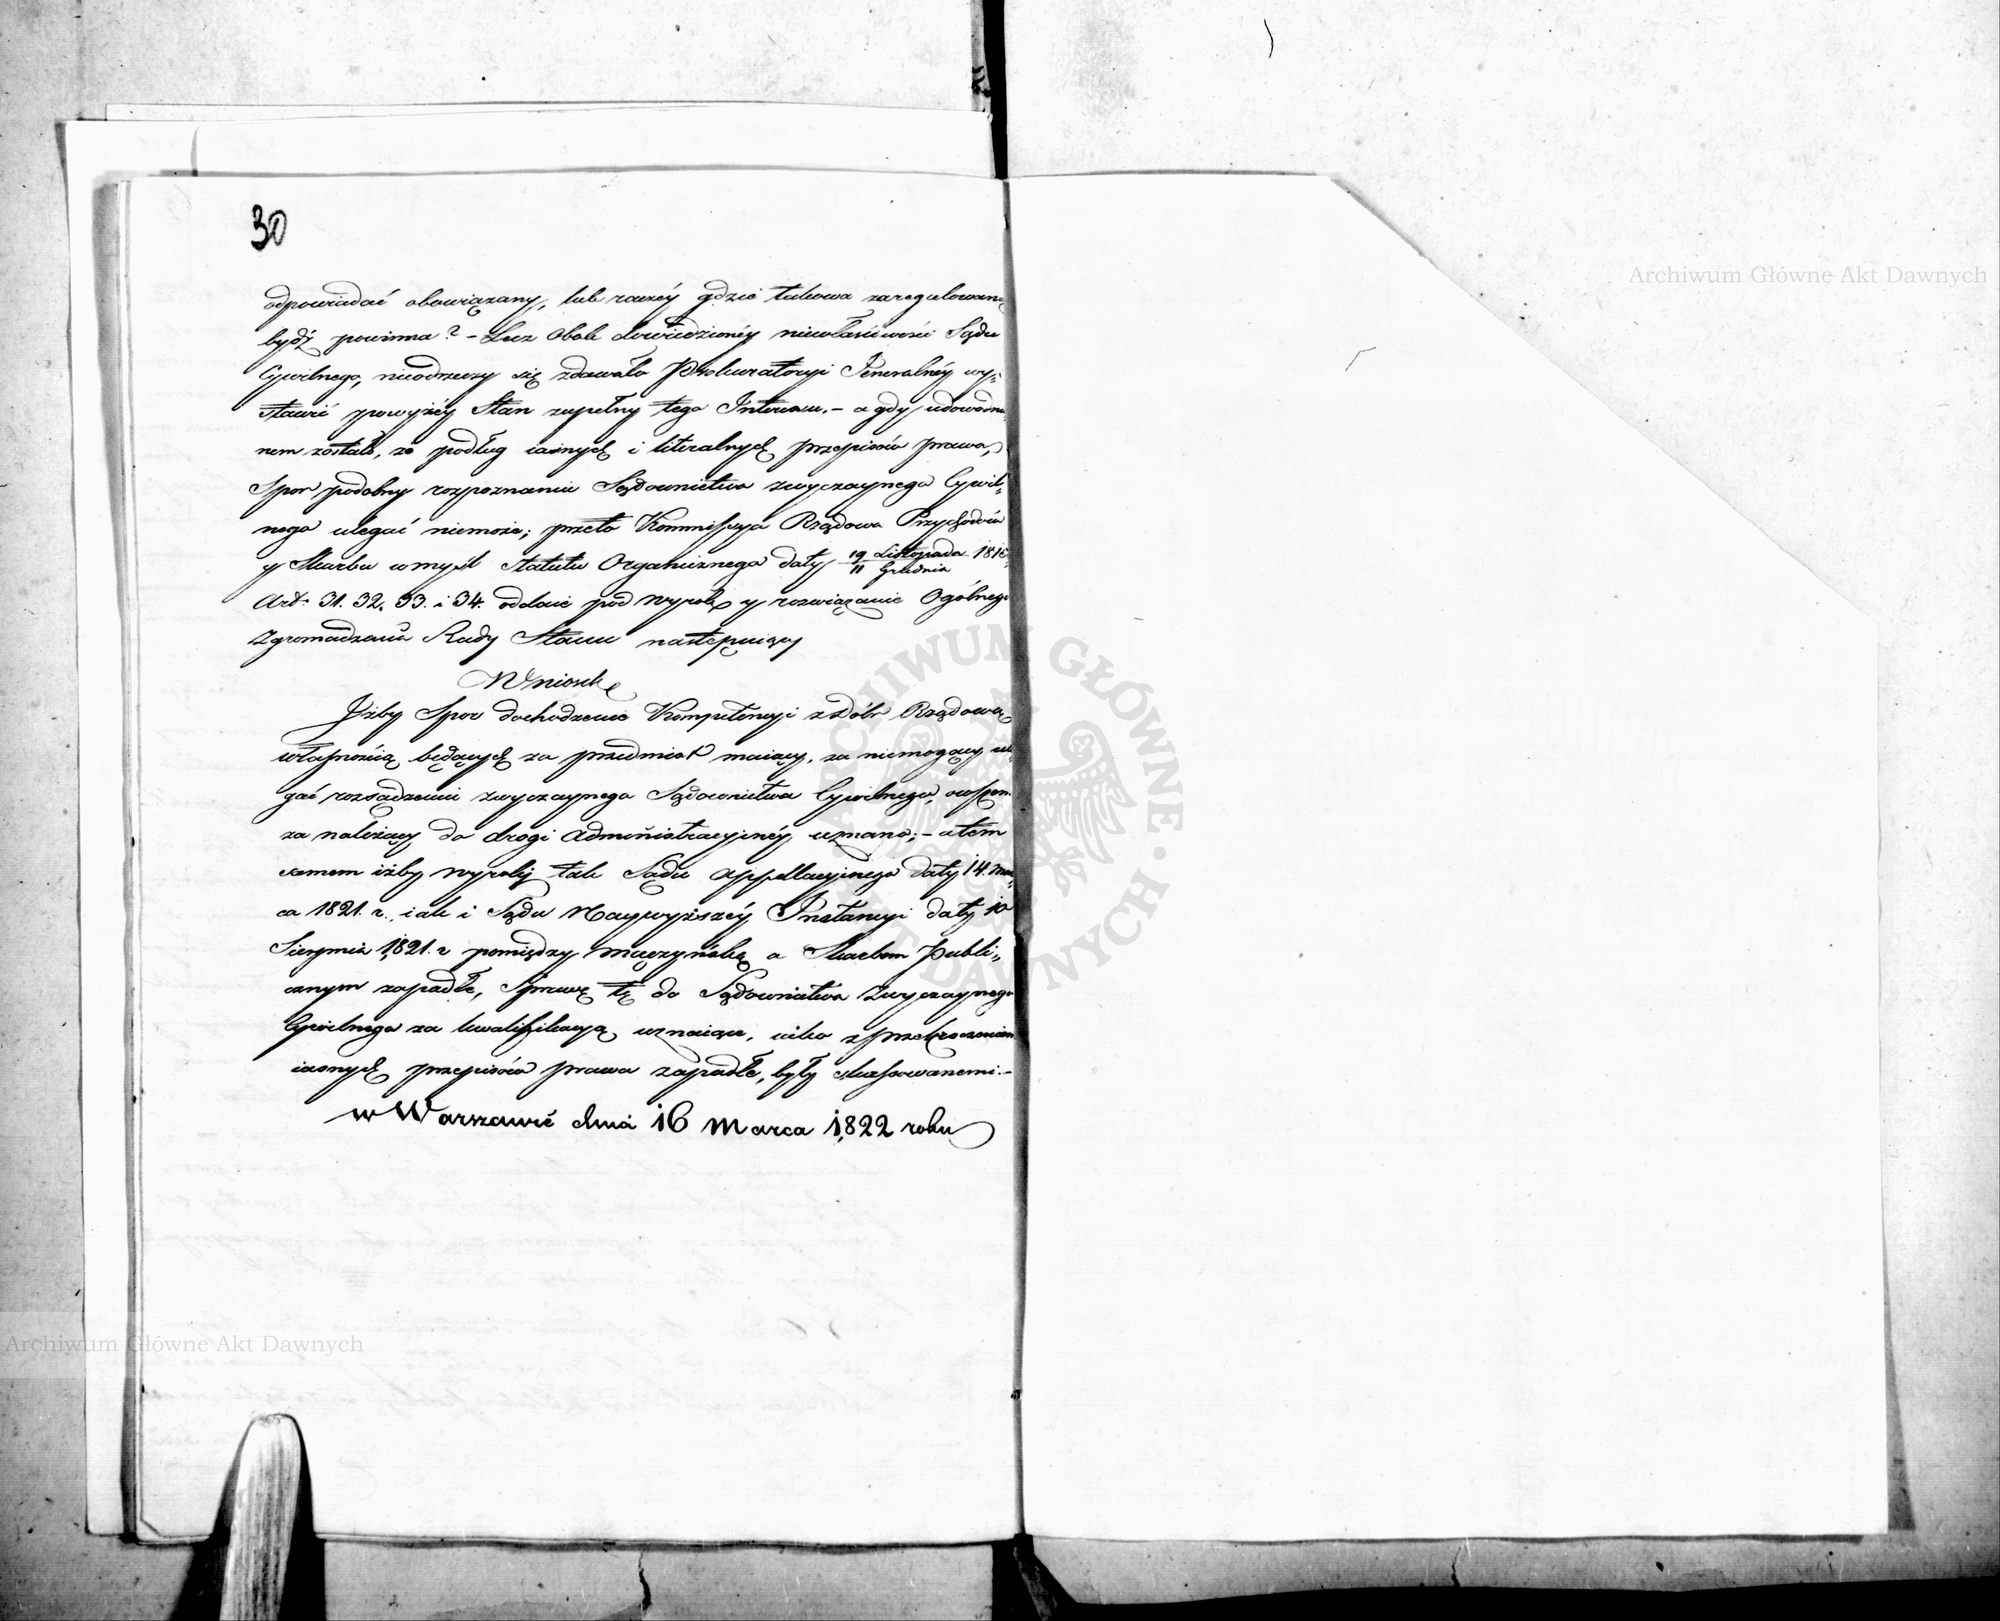 30
odpowiadać obowiązany, lub raczéy gdzie takowa zaregulowaną
bydź powinna? – Lecz Obok dowiedzionéy niewłaściwości Sądu
Cywilnego, nieodrzeczy się zdawało Prokuratoryi Jeneralnéy wy-
stawić powyżéy Stan zupełny tego Interessu. – a gdy udowodnio-
nem zostało, że podług iasnych i literalnych przepisów prawa,
Spor podobny rozpoznaniu Sądownictwa zwyczaynego Cywil-
nego ulegać niemoże; przeto Kommissya Rządowa Przychodów
y Skarbu w myśl Statutu Organicznego daty 19 Listopada 1816
11 Grudnia
Art: 31. 32. 33. i 34. oddaie pod wyrok y rozwiązanie Ogólnego
Zgromadzenia Rady Stanu następuiący
Wniosek
Jżby Spor dochodzenie Kompetencyi z Dóbr Rządową
własnością będących za przedmiot maiący, za niemogący ule-
gać rozsądzeniu zwyczaynego Sądownictwa Cywilnego, owszem
za należący do drogi Administracyinéy uznano; – a tem
samem iżby wyroki tak Sądu Appellacyinego daty 14. Mar-
ca 1821. r. iak i Sądu Naywyższéy Instancyi daty 10
Sierpnia 1821. r pomiędzy Mączyńską a Skarbem Publi-
cznym zapadłe, Sprawę tę do Sądownictwa Zwyczaynego
Cywilnego za kwalifikacyą uznaiące, iako z przekroczeniem
iasnych przepisów prawa zapadłe, były skassowanemi. –
w Warszawie dnia 16 Marca 1822 roku
Archiwum Główne Akt Dawnych
Archiwum Główne Akt Dawnych
ARCHIWUM GŁÓWNE AKT DAWNYCH